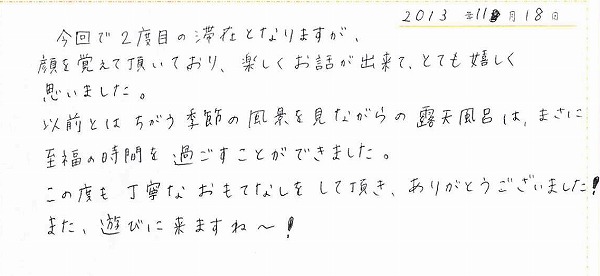 2013年11月18日
今回で2度目の滞在となりますが、
顔を覚えて頂いており、楽しくお話が出来て、とても嬉しく
思いました。
以前とはちがう季節の風景を見ながらの露天風呂は、まさに
至福の時間を過ごすことができました。
この度も丁寧なおもてなしをして頂き、ありがとうございました!
また、遊びに来ますね〜!